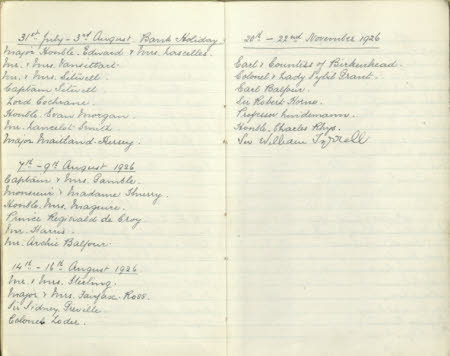 31st July - 3rd August Bank Holiday
Major Honble. Edward & Mrs. Lascelles.
Mr. & Mrs. Vansittart
Mr. & Mrs. Sitwell
Captain Sitwell
Lord Cochrane
Honble. Evan Morgan
Mr. Lancelot Smith
Major Maitland-Kersey.
7th - 9th August 1926
Captain & Mrs.
Monsieur & Madame Thierry
Honble. Mrs. Maguire.
Prince Reginald de Croy
Mr. Harris.
Mr. Archie Balfour
14th - 16th August 1926
Mr. & Mrs. Sterling.
Major & Mrs. Fairfax-Ross.
Sir Sidney Greville.
Colonel Loder.
20th - 22nd November 1926
Earl & Countess of Birkenhead.
Colonel & Lady Sybil Grant.
Earl Balfour.
Sir Robert Horne.
Professor Lindemann.
Honble. Charles Rhys.
Sir William Tyrrell